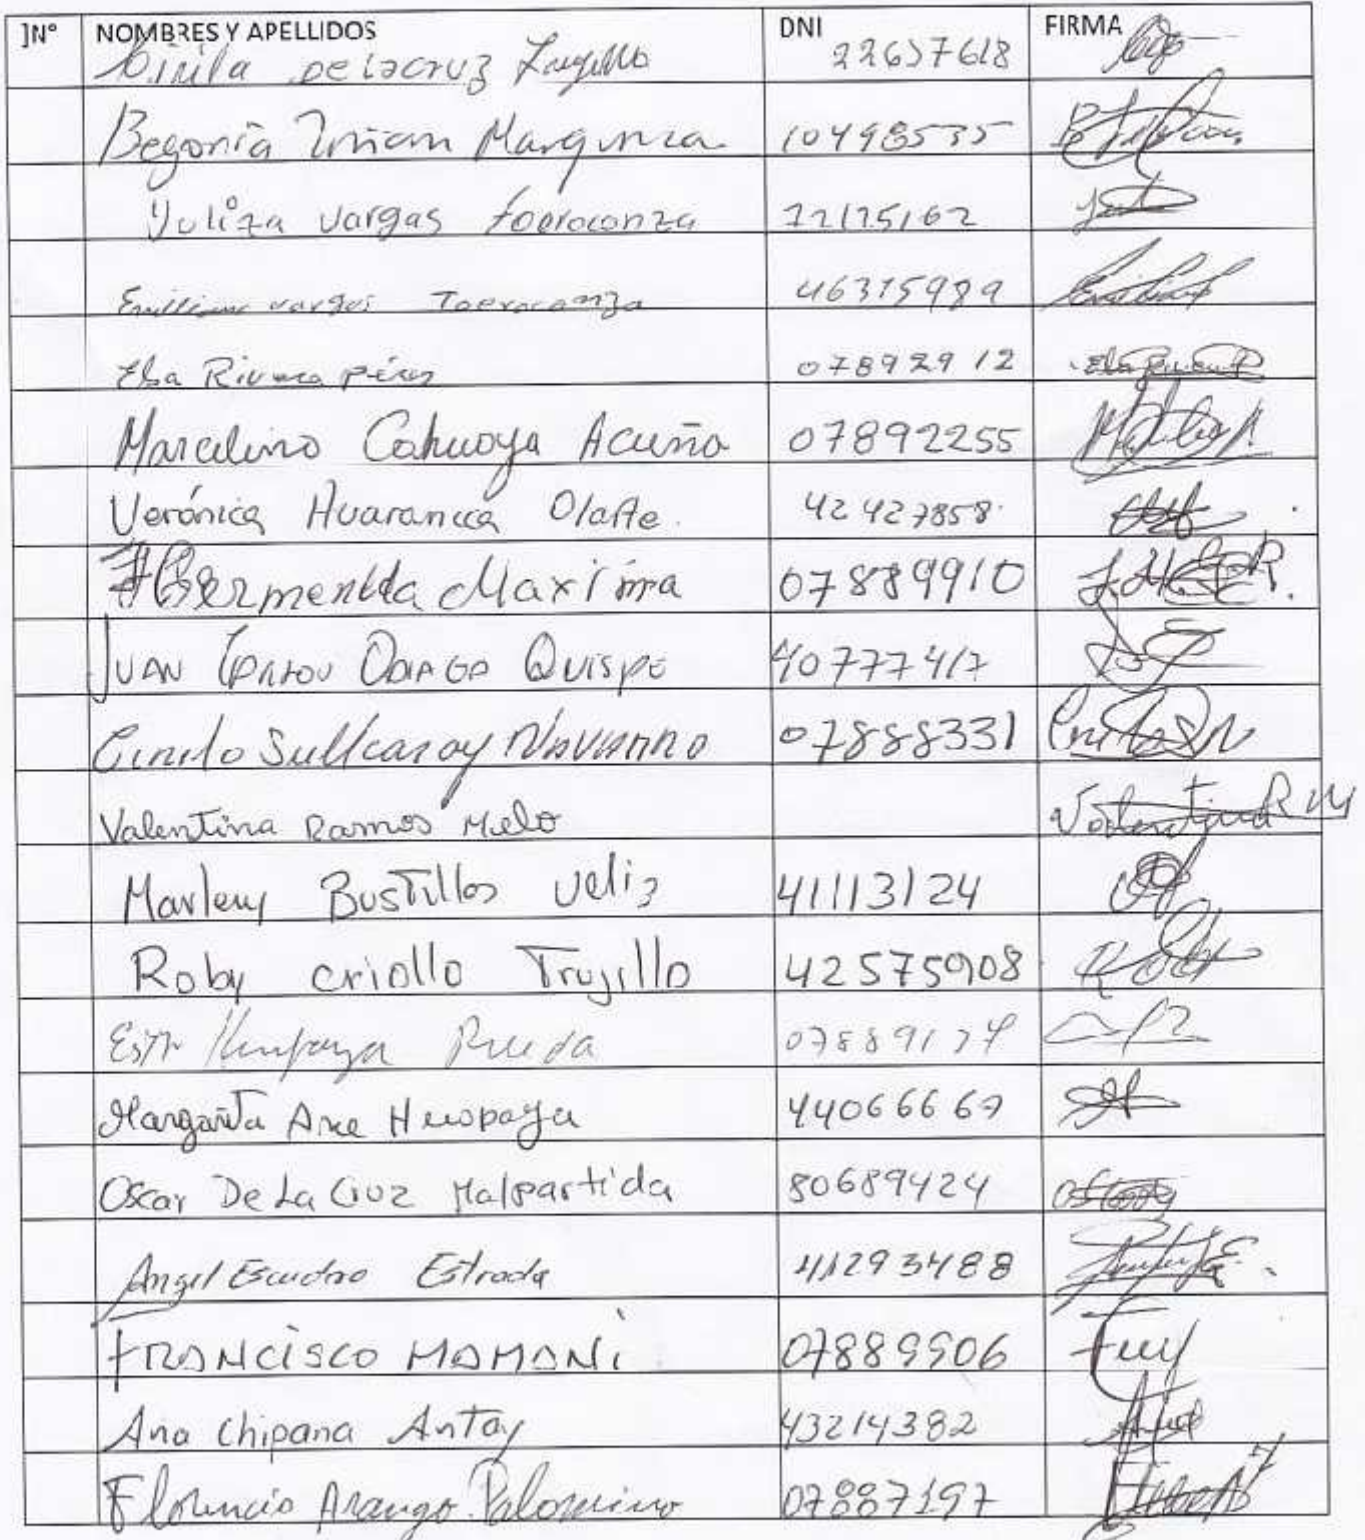 ]N° NOMBRES Y APELLIDOS DNI FIRMA
Cirila Delacruz 22637618
Begonia Marquina 10498535
Yuliza Vargas
Vargas 46315989
Elsa Rivera pérez 07892912
Marcelino Cahuaya Acuña 07892255
Verónica Huarancca Olarte 42427858
Hermenilda Maxima 07889910
JUAN Quispe 40777417
Cirilo Sullcaray Navarro 07888331
Valentina Ramos Melo Valentina R M
Marleny Bustillos Veliz 41113124
Roby Criollo Trujillo 42575908
Rueda
Margarita Huapaya 44066667
Oscar De La Cruz Malpartida 80689424
Angel Escudero Estrada 41293488
FRANCISCO MAMANI 07889906
Ana Chipana Antay 43214382
Florencio Arango Palomino 07887197